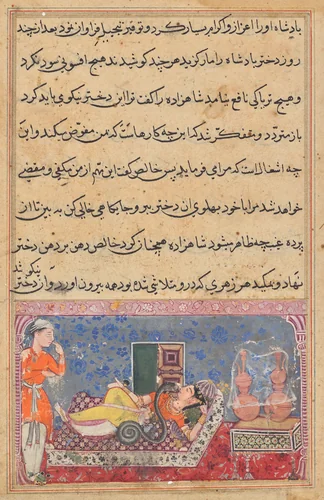 پادشاه اورا اعزاز و اکرام بسیار کرد و توقیر و تبجیل فراوان نمود بعد از چند
روز دختر پادشاه را مار گزید هرچند کوشیدند هیچ افسونی سود نکرد
و هیچ تریاکی نافع نیامد شاهزاده را گفت تو این دختر نیکوی باید کرد
باز متردد و متفکر شد که این چه کارهاست که بمن مفوض میکند و این
چه اشغال است که مرا می فرماید پس خالص گفت این مهم از من مکفی و مقضی
خواهد شد مرا با خود پهلوی آن دختر ببر و جایگاهی خالی کن به بین تا از
پرده غیب چه ظاهر شود شاهزاده همچنان کرد خالص دهن بر دهن دختر
نهاد و بمکید هر زهری که در و متلاشی شده بود همه بیرون آورد و آن دختر نیکو شد